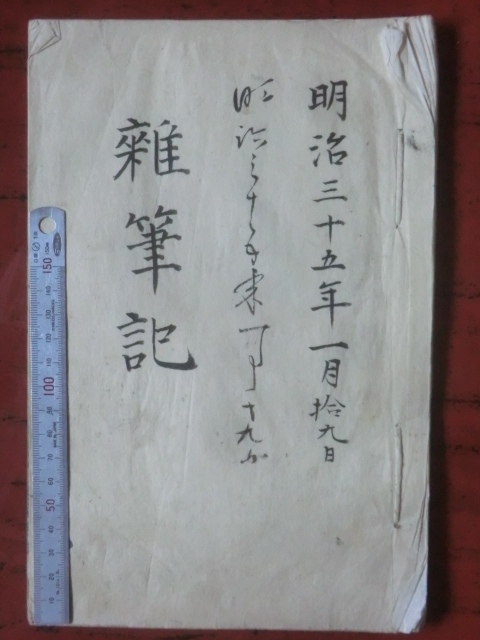 明治三十五年一月拾九日
明治三十五年第一月十九日
雜筆記
50
100
150